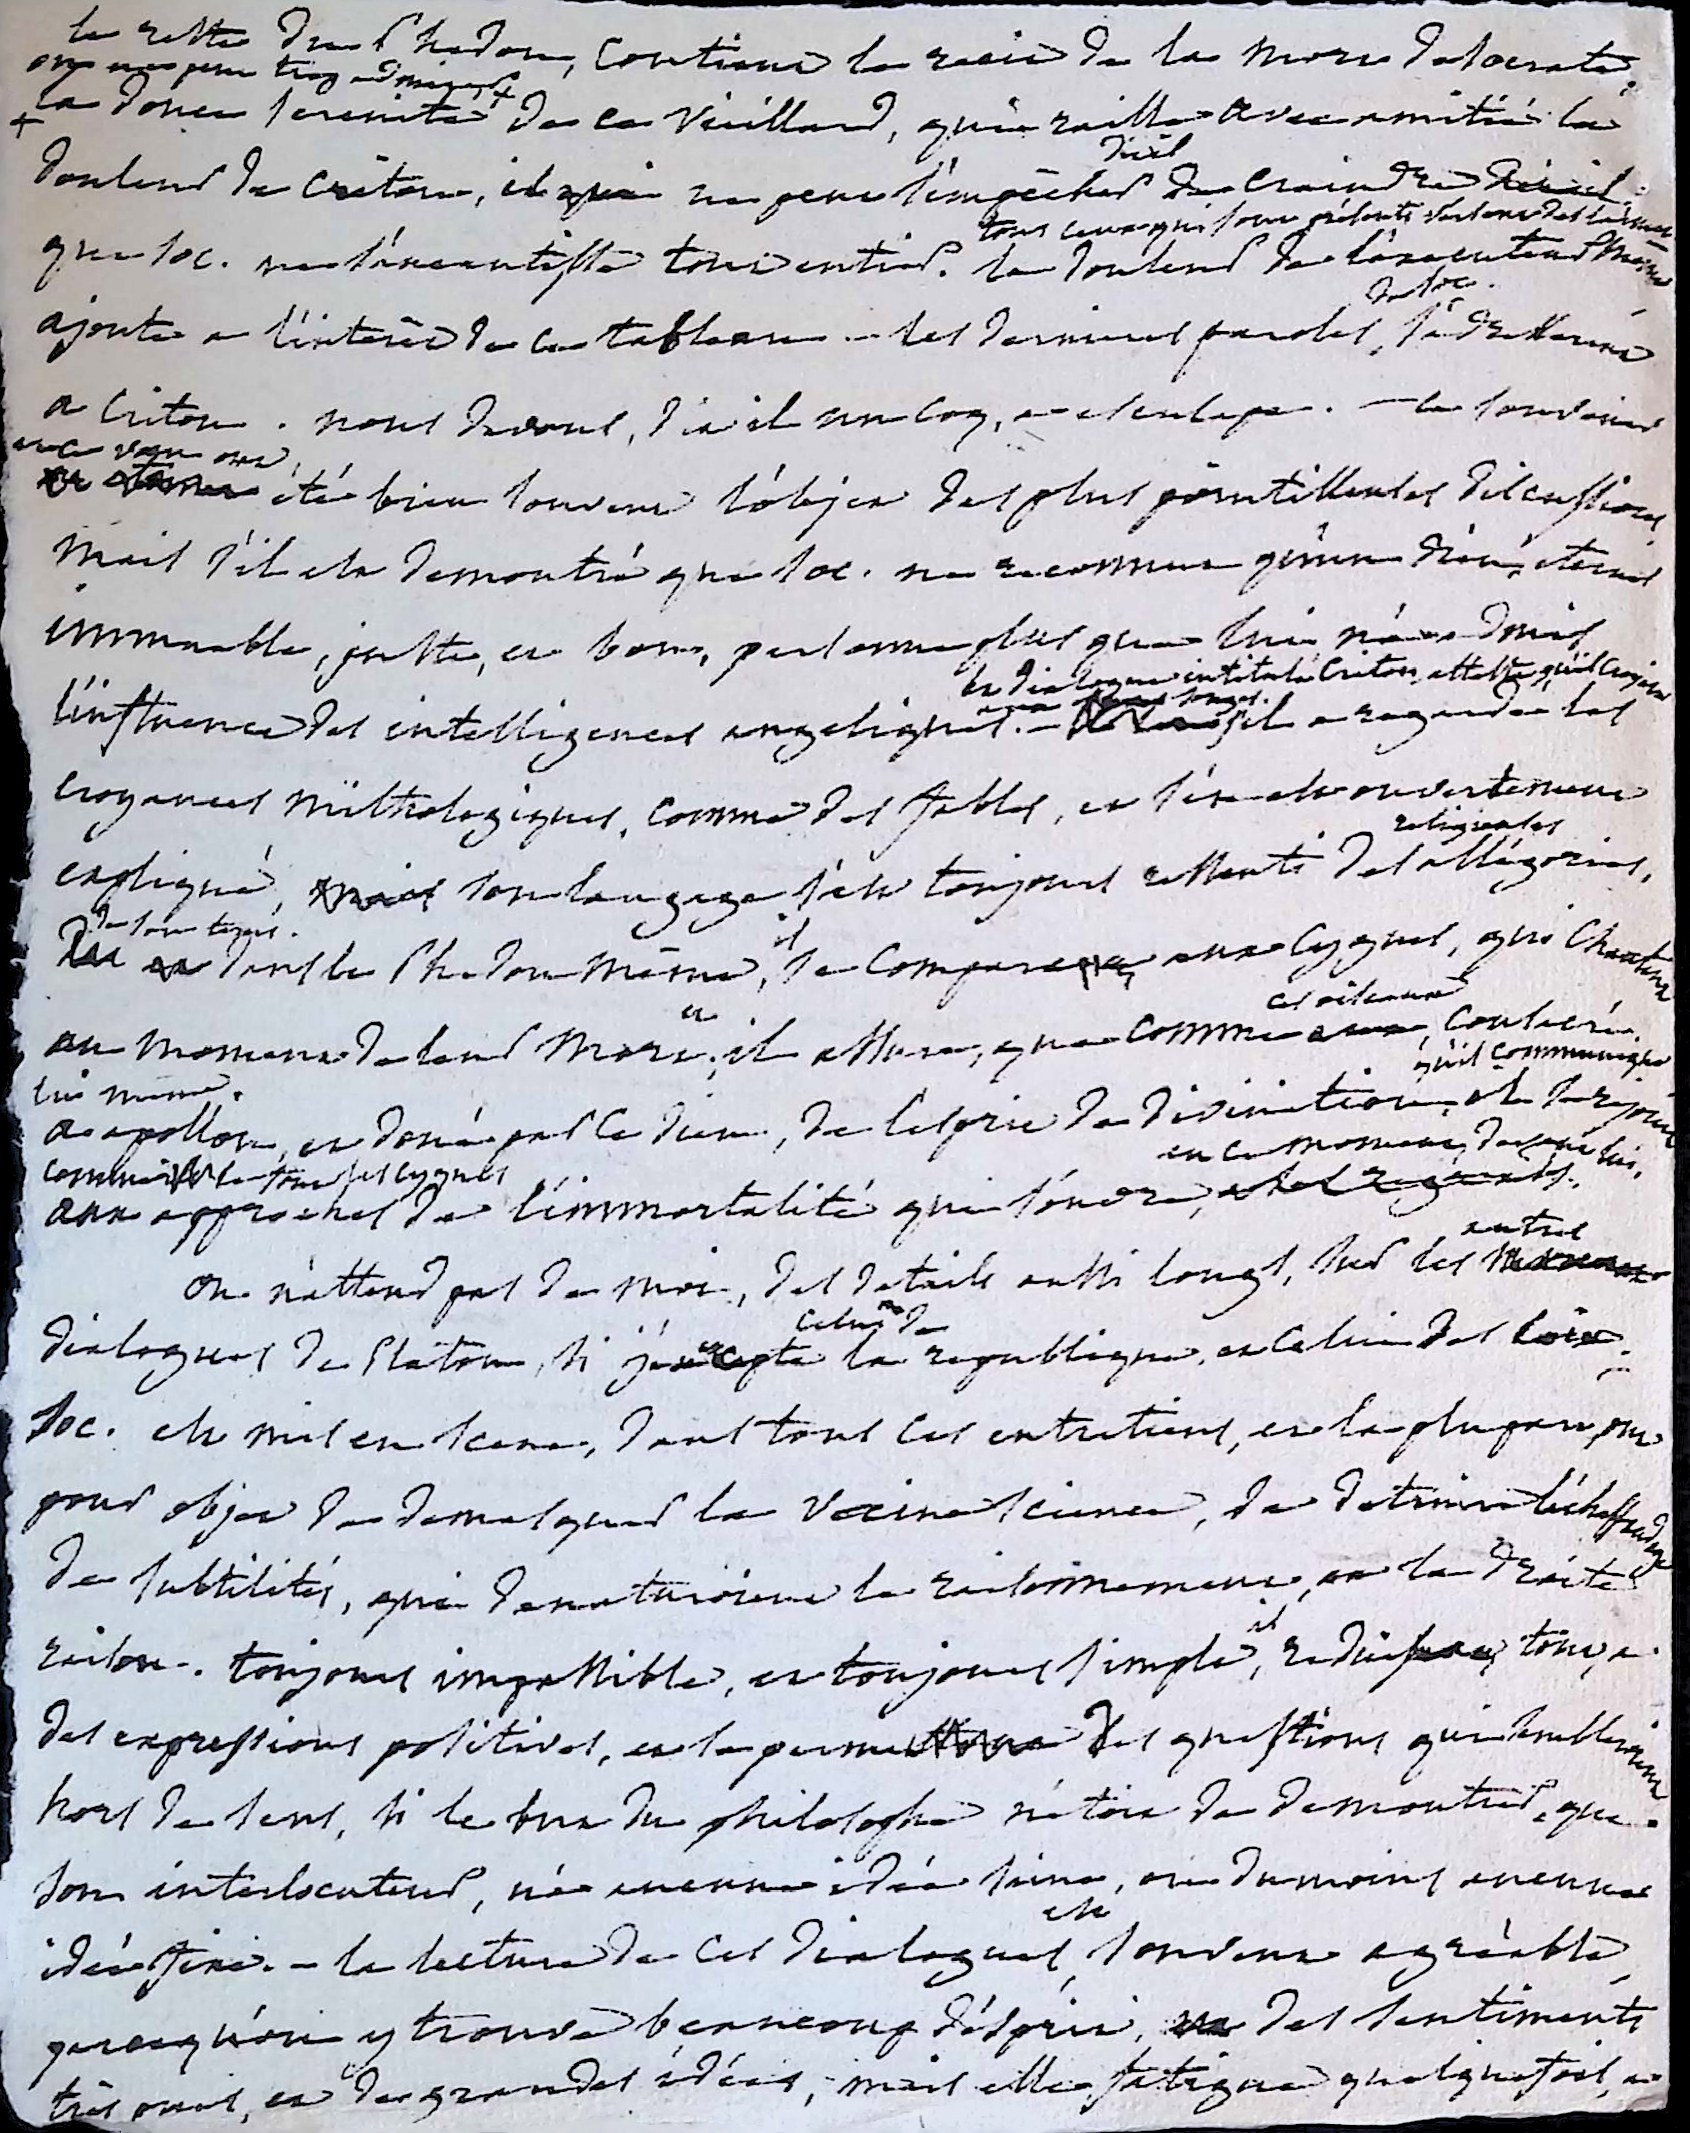 le reste du Phedon, contient le recit de la mort de Socrate.
on ne peut trop admirer +
+ la douce serenité de ce vieillard, qui raille avec amitié la
douleur de Criton, et qui ne peut s'empêcher de craindre
dit il
que Soc. ne s'aneantisse tout entier. la douleur de l'executeur même
tous ceux qui sont présents versent des larmes
ajoute a l'interêt de ce tableau - les dernieres paroles, s'adressent
de Soc.
a Criton. nous devons, dit il un coq, a esculape. - ce souvenir
et ce vœu ont
été bien souvent l'objet des plus pointilleuses discussions
mais s'il est demontré que Soc. ne reconnut qu'un dieu, eternel
immuable, juste, et bon, personne plus que lui n'a admis
le dialogue intitulé Criton, atteste qu'il croyait
aux songes.
l'influence des intelligences angeliques. - il a regardé les
croyances mithologiques, comme des fables, et s'en est ouvertement
expliqué, mais son langage s'est toujours ressenti des allégories,
religieuses
de son tems.
dans le Phedon même, il se compare aux cygnes, qui chantent
au moment de leur mort, et il assure, que comme ces oiseaux, consacré
lui même.
a apollon, et doué par ce dieu, de l'esprit de divination, il se rejouit
qu'il communique
comme le font ses cygnes
en ce moment, devant lui.
aux approches de l'immortalité qui s'ouvre,
on n'attend pas de moi, des details aussi longs, sur les autres
dialogues de Platon, si j'excepte celui de la republique, et celui des loix.
Soc. est mis en scene, dans tous ces entretiens, et la plupart, ont
pour objet de demasquer la vaine science, de detruire l'échaffaudage
de subtilités, qui denaturoient le raisonnement, et la droite
raison. toujours impassible, et toujours simple, il reduit tout, a
des expressions positives, et se permet des questions qui sembleroient
hors de sens, si le but du philosophe n'etoit de demontrer, que
son interlocuteur, n'a aucune idée saine, ou du moins aucune
idée fixe. - la lecture de ces dialogues, est souvent agréable,
parcequ'on y trouve beaucoup d'esprit, des sentiments
très vrais, et de grandes idées, mais elle fatigue quelquefois, a